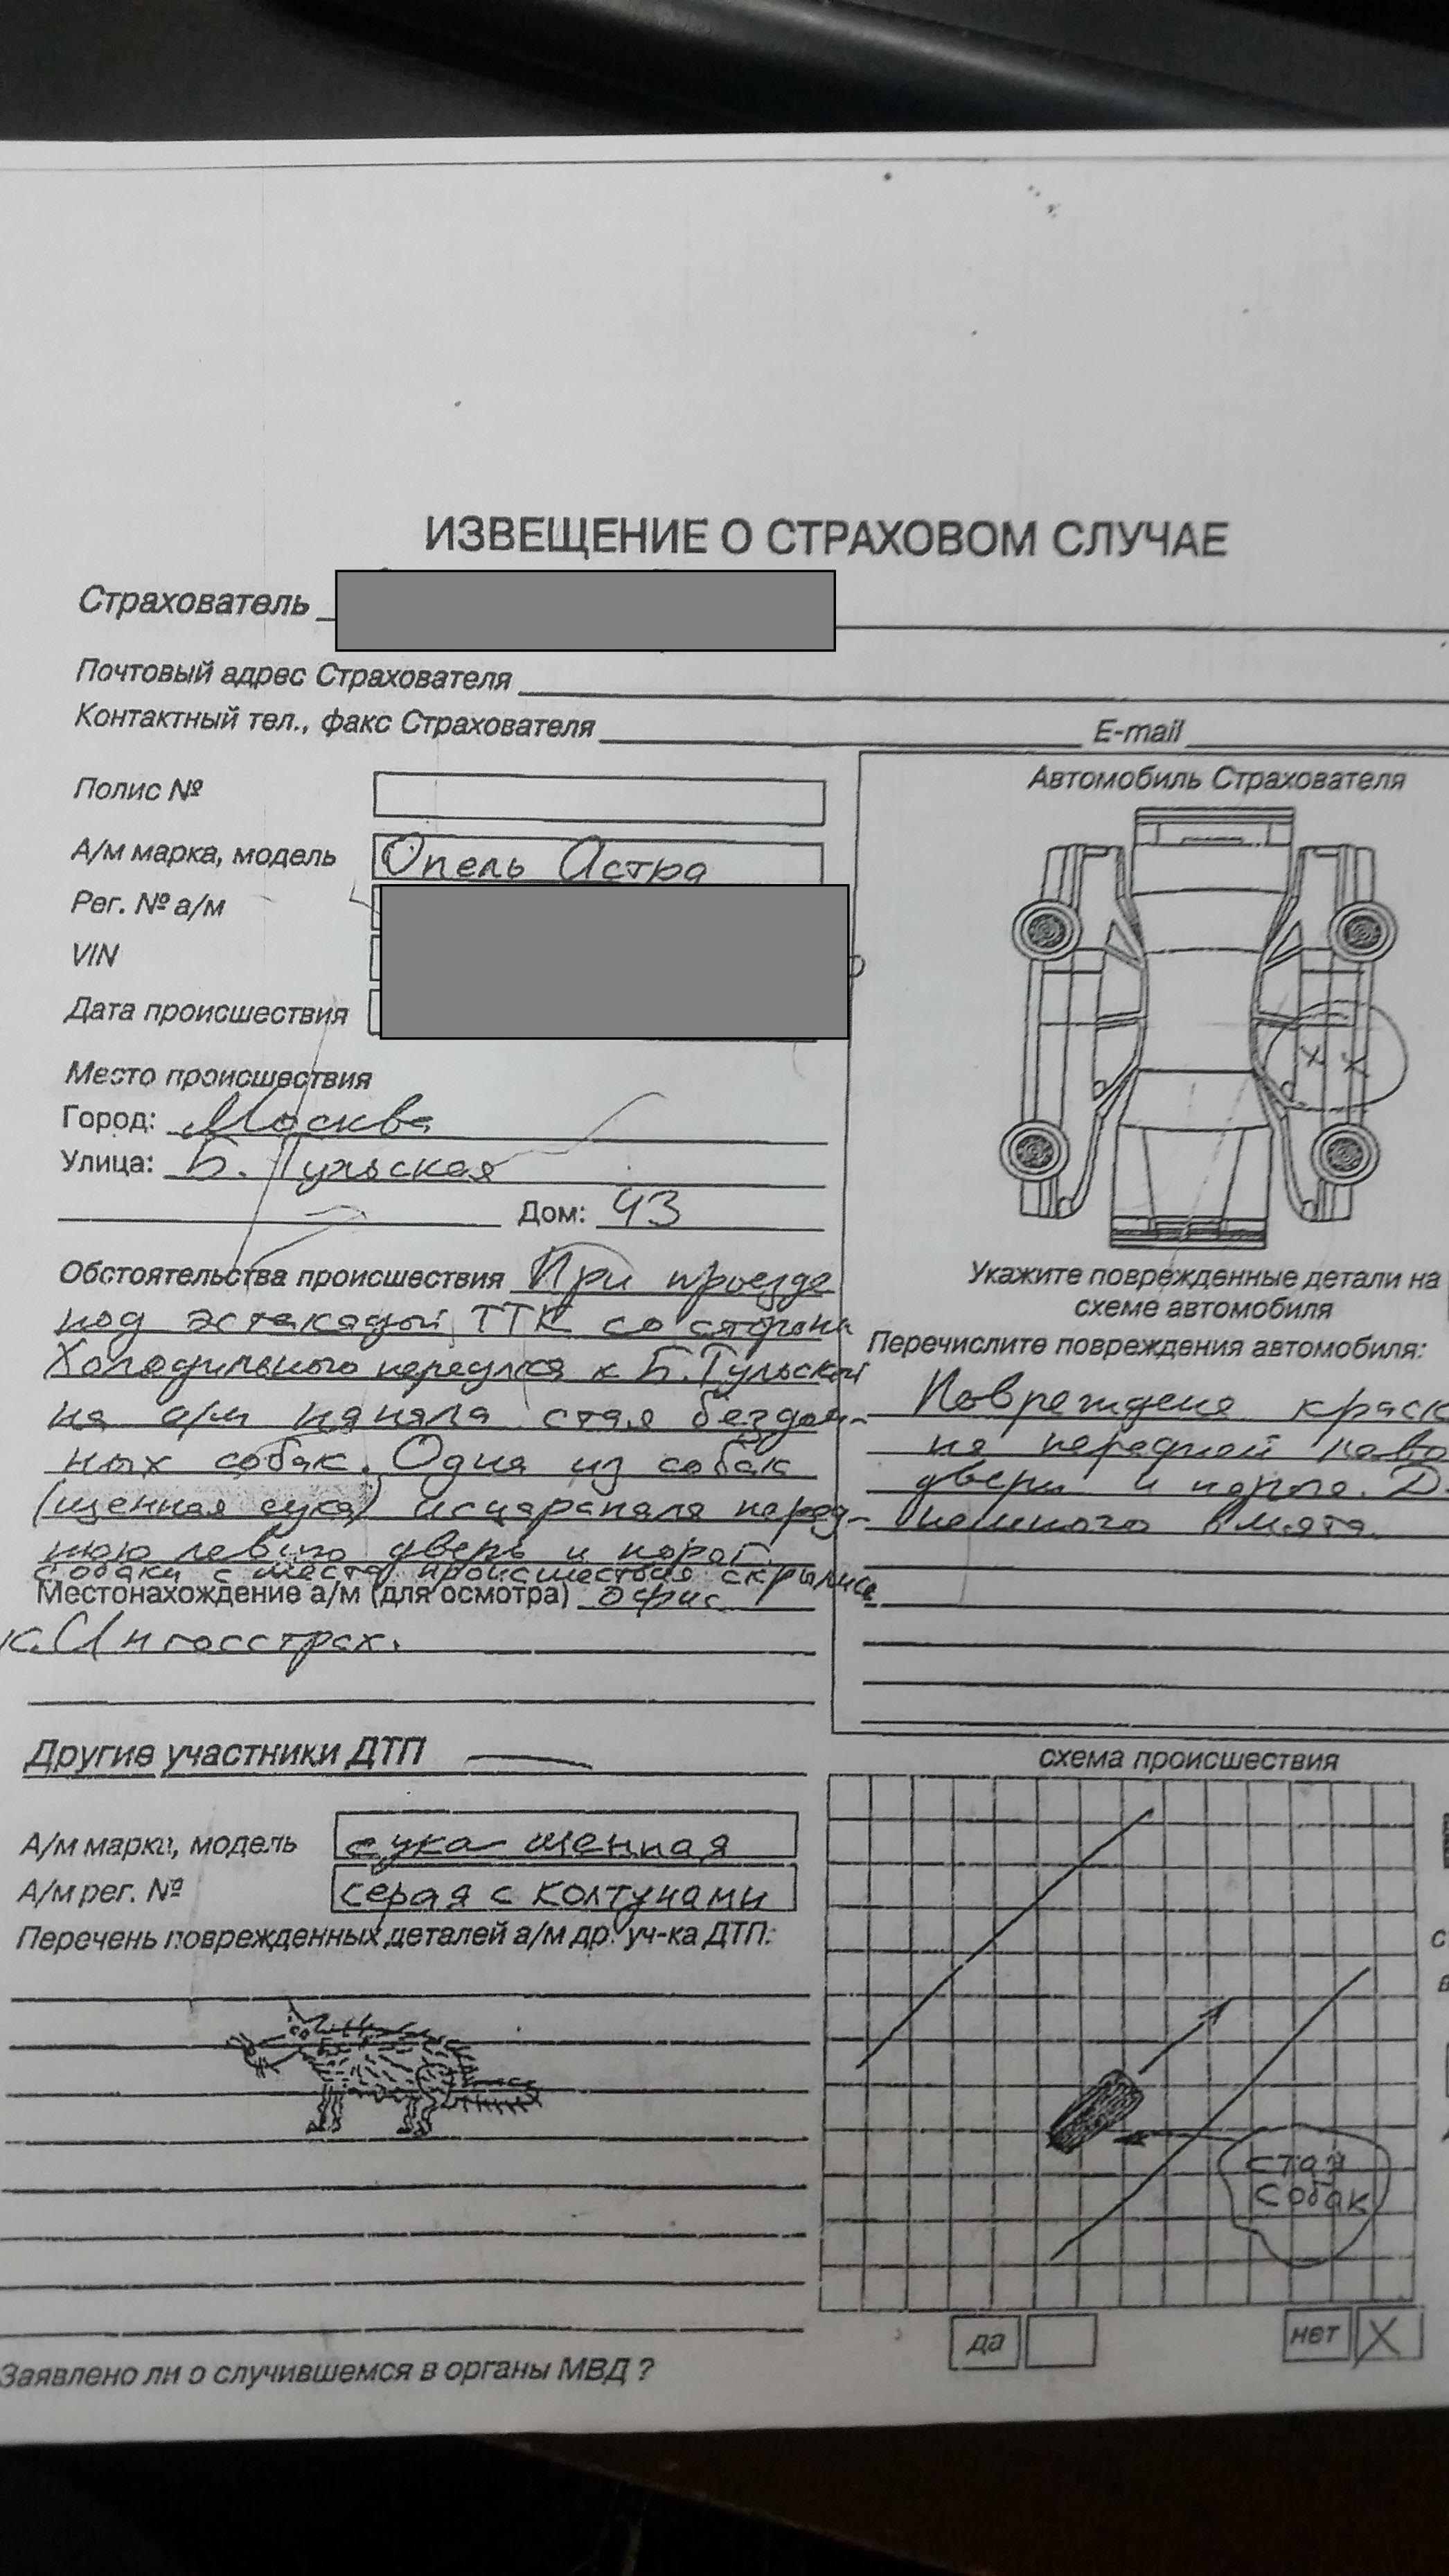 ИЗВЕЩЕНИЕ О СТРАХОВОМ СЛУЧАЕ
Страхователь
Почтовый адрес Страхователя
Контактный тел., факс Страхователя
E-mail
Полис №
А/м марка, модель Опель Астра
Рег. № а/м
VIN
Дата происшествия
Место происшествия
Город: Москва
Улица: Б. Тульская
Дом: 43
Обстоятельства происшествия При проезде
под эстакадой ТТК со стороны
Холодильного переулка к Б. Тульской
на а/м напала стая бездом-
ных собак. Одна из собак
(щенная сука) исцарапала перед-
нюю левую дверь и порог.
собаки с места происшествия скрылись
Местонахождение а/м (для осмотра) офис
к. Ингосстрах.
Автомобиль Страхователя
Укажите поврежденные детали на
схеме автомобиля
Перечислите повреждения автомобиля:
Повреждена краск
на передней
двери и пороге. Д
немного вмята.
Другие участники ДТП
А/м марка, модель сука щенная
А/м рег. № серая с колтунами
Перечень поврежденных деталей а/м др. уч-ка ДТП:
схема происшествия
стая
собак
да
нет X
Заявлено ли о случившемся в органы МВД ?